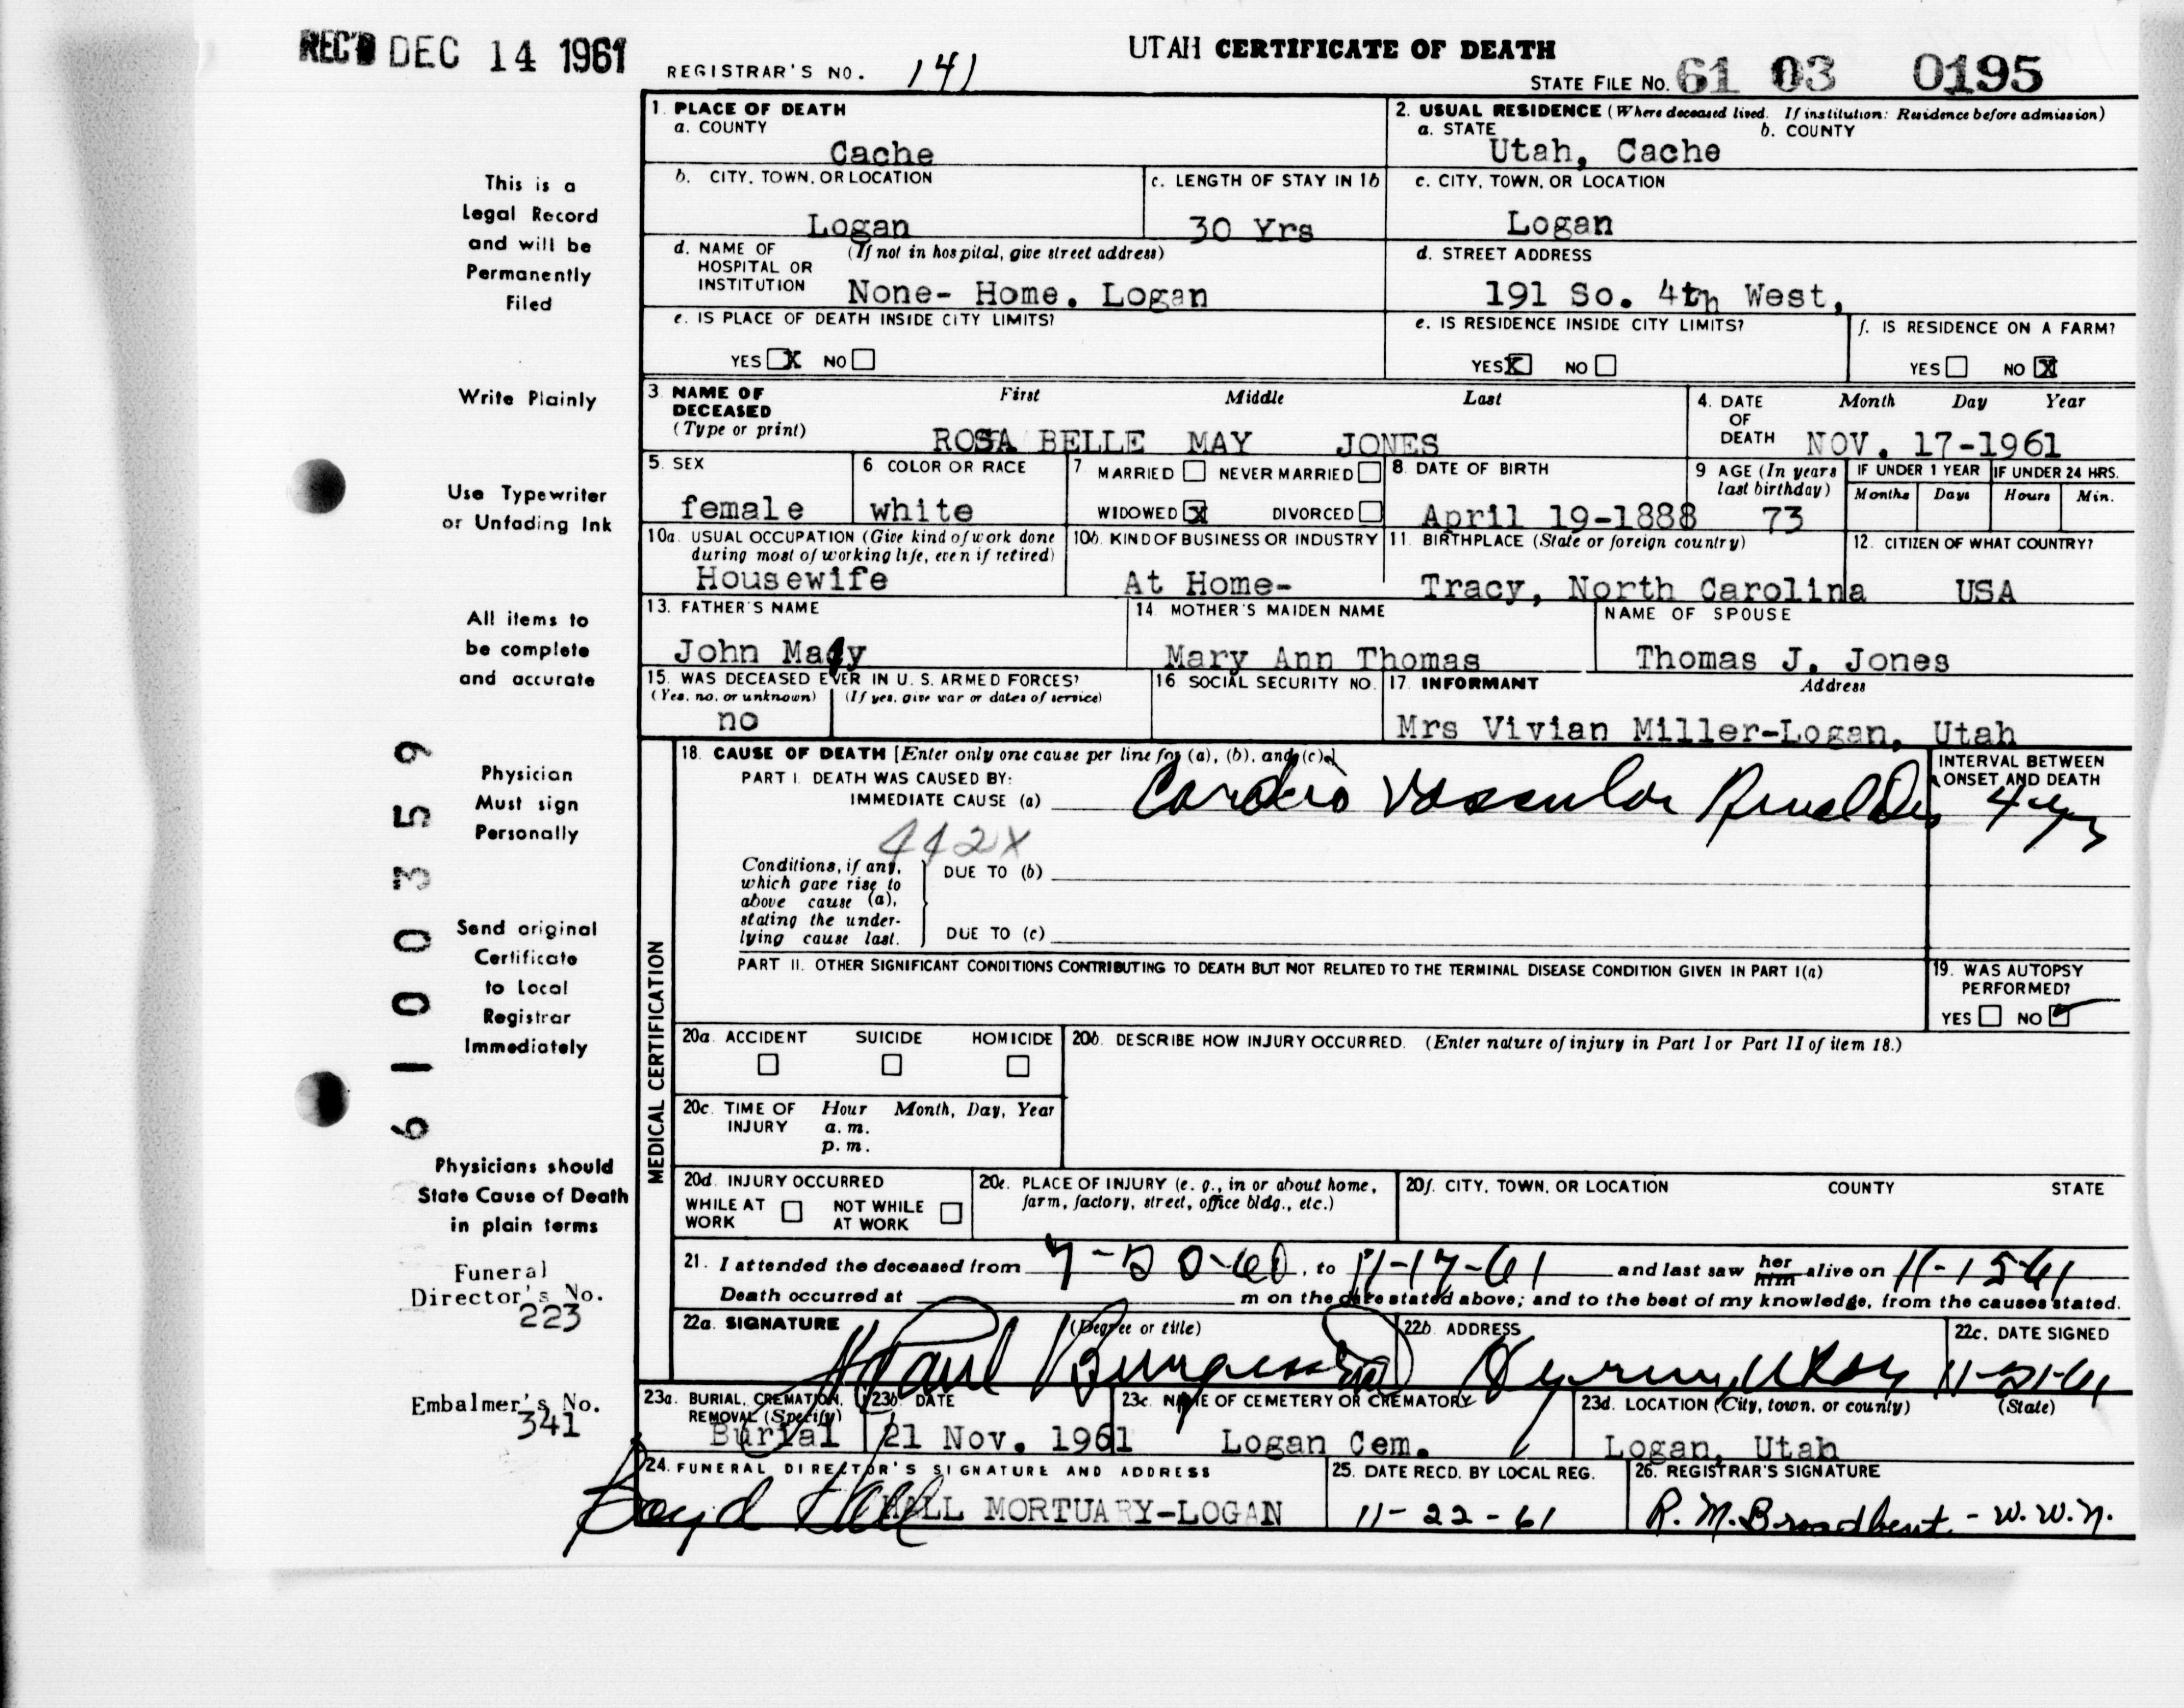 REC'D DEC 14 1961
UTAH CERTIFICATE OF DEATH
REGISTRAR'S NO. 141
STATE FILE NO. 61 03 0195
This is a
Legal Record
and will be
Permanently
Filed
Write Plainly
Use Typewriter
or Unfading Ink
All items to
be complete
and accurate
Physician
Must sign
Personally
Send original
Certificate
to Local
Registrar
Immediately
Physicians should
State Cause of Death
in plain terms
Funeral
Director's No.
223
Embalmer's No.
341
61 00359
1. PLACE OF DEATH
a. COUNTY
Cache
2. USUAL RESIDENCE (Where deceased lived. If institution: Residence before admission)
a. STATE b. COUNTY
Utah, Cache
b. CITY, TOWN, OR LOCATION
Logan
c. LENGTH OF STAY IN 1b
30 Yrs
c. CITY, TOWN, OR LOCATION
Logan
d. NAME OF HOSPITAL OR INSTITUTION (If not in hospital, give street address)
None- Home. Logan
d. STREET ADDRESS
191 So. 4th West,
e. IS PLACE OF DEATH INSIDE CITY LIMITS?
YES X NO
e. IS RESIDENCE INSIDE CITY LIMITS?
YES X NO
f. IS RESIDENCE ON A FARM?
YES NO X
3. NAME OF DECEASED (Type or print)
First Middle Last
ROSA BELLE MAY JONES
4. DATE OF DEATH
Month Day Year
NOV. 17-1961
5. SEX
female
6 COLOR OR RACE
white
7 MARRIED NEVER MARRIED
WIDOWED X DIVORCED
8. DATE OF BIRTH
April 19-1888
9 AGE (In years last birthday)
73
IF UNDER 1 YEAR
Months Days
IF UNDER 24 HRS.
Hours Min.
10a. USUAL OCCUPATION (Give kind of work done during most of working life, even if retired)
Housewife
10b. KIND OF BUSINESS OR INDUSTRY
At Home-
11. BIRTHPLACE (State or foreign country)
Tracy, North Carolina
12. CITIZEN OF WHAT COUNTRY?
USA
13. FATHER'S NAME
John May
14. MOTHER'S MAIDEN NAME
Mary Ann Thomas
NAME OF SPOUSE
Thomas J. Jones
15. WAS DECEASED EVER IN U. S. ARMED FORCES?
(Yes, no, or unknown) (If yes, give war or dates of service)
no
16 SOCIAL SECURITY NO.
17. INFORMANT Address
Mrs Vivian Miller-Logan, Utah
MEDICAL CERTIFICATION
18. CAUSE OF DEATH [Enter only one cause per line for (a), (b), and (c).]
PART I. DEATH WAS CAUSED BY:
IMMEDIATE CAUSE (a) Cardio Vascular Renal Dis
INTERVAL BETWEEN ONSET AND DEATH
4 yrs
442X
Conditions, if any, which gave rise to above cause (a), stating the underlying cause last.
DUE TO (b)
DUE TO (c)
PART II. OTHER SIGNIFICANT CONDITIONS CONTRIBUTING TO DEATH BUT NOT RELATED TO THE TERMINAL DISEASE CONDITION GIVEN IN PART I(a)
19. WAS AUTOPSY PERFORMED?
YES NO
20a. ACCIDENT SUICIDE HOMICIDE
20b. DESCRIBE HOW INJURY OCCURRED. (Enter nature of injury in Part I or Part II of item 18.)
20c. TIME OF INJURY Hour Month, Day, Year
a. m.
p. m.
20d. INJURY OCCURRED
WHILE AT WORK NOT WHILE AT WORK
20e. PLACE OF INJURY (e. g., in or about home, farm, factory, street, office bldg., etc.)
20f. CITY, TOWN, OR LOCATION COUNTY STATE
21. I attended the deceased from 7-20-60, to 11-17-61 and last saw her him alive on 11-15-61
Death occurred at m on the date stated above; and to the best of my knowledge, from the causes stated.
22a. SIGNATURE (Degree or title)
Paul Burgess
22b. ADDRESS
Hyrum, Utah
22c. DATE SIGNED
11-21-61
23a. BURIAL, CREMATION, REMOVAL (Specify)
Burial
23b. DATE
21 Nov. 1961
23c. NAME OF CEMETERY OR CREMATORY
Logan Cem.
23d. LOCATION (City, town, or county) (State)
Logan, Utah
24. FUNERAL DIRECTOR'S SIGNATURE AND ADDRESS
Boyd Hall HALL MORTUARY-LOGAN
25. DATE RECD. BY LOCAL REG.
11-22-61
26. REGISTRAR'S SIGNATURE
R. M. Broadbent - W. W. N.